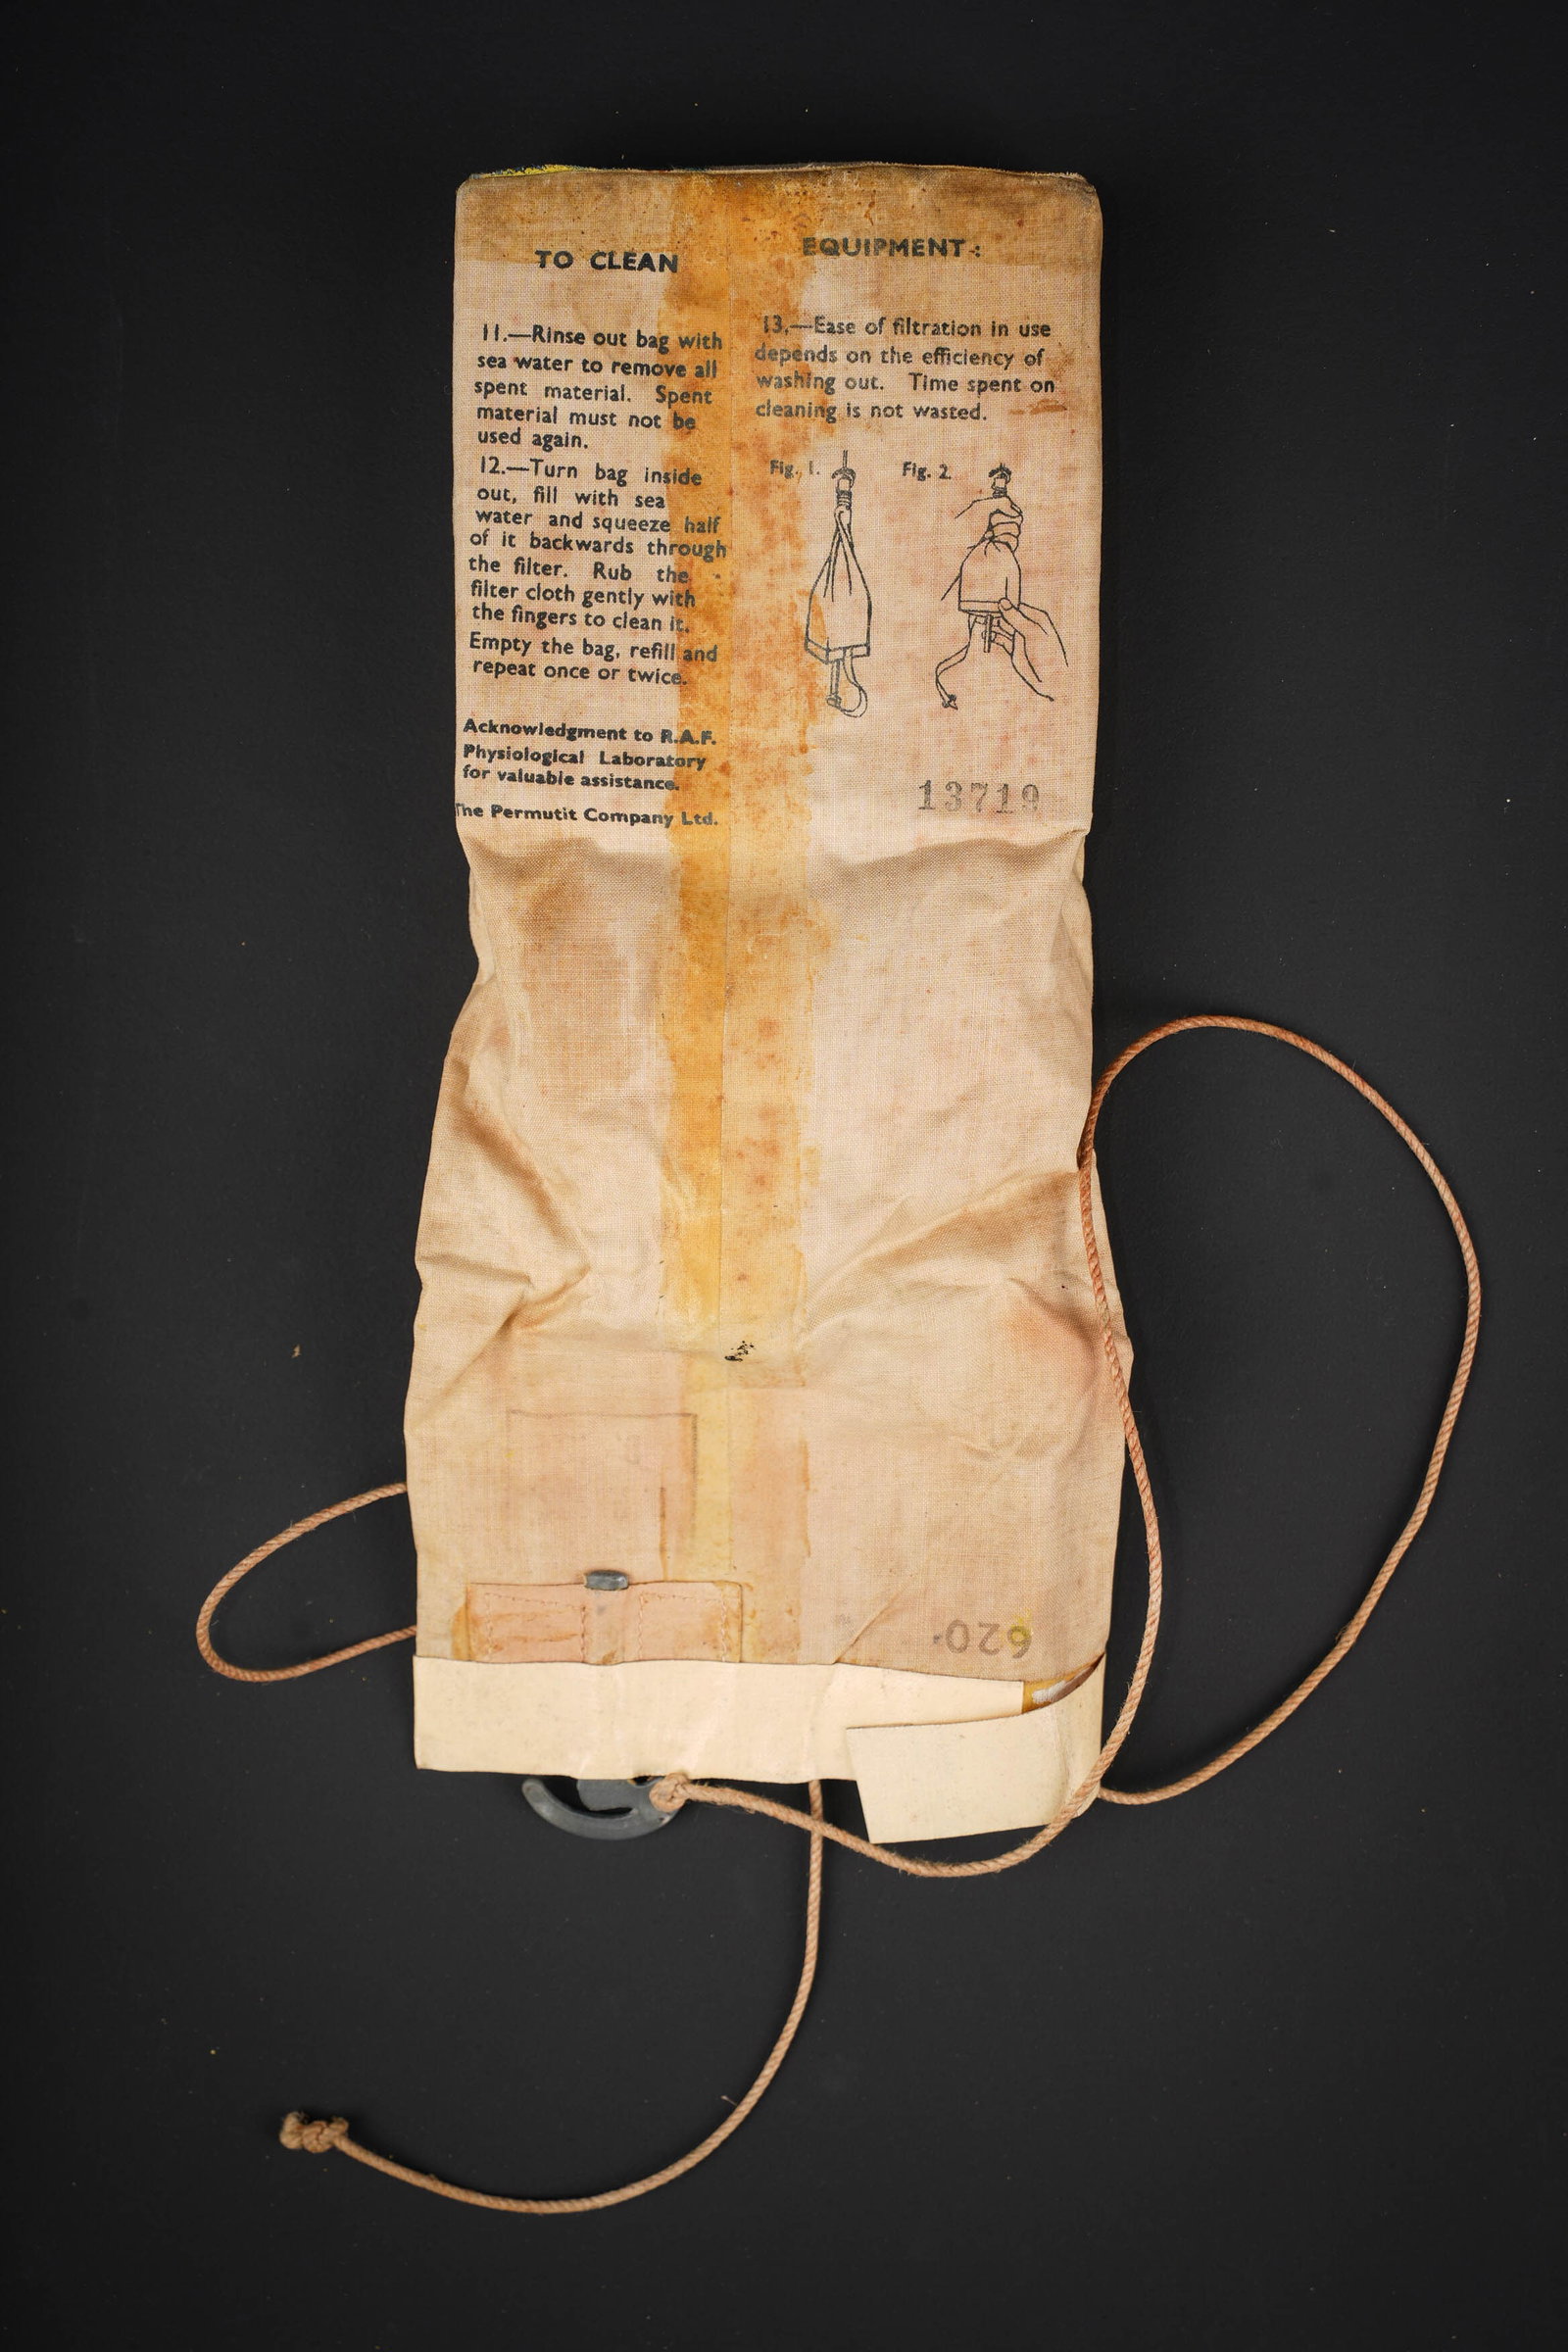 TO CLEAN EQUIPMENT:
11.—Rinse out bag with
sea water to remove all
spent material. Spent
material must not be
used again.
12.—Turn bag inside
out, fill with sea
water and squeeze half
of it backwards through
the filter. Rub the
filter cloth gently with
the fingers to clean it.
Empty the bag, refill and
repeat once or twice.
Acknowledgment to R.A.F.
Physiological Laboratory
for valuable assistance.
The Permutit Company Ltd.
13.—Ease of filtration in use
depends on the efficiency of
washing out. Time spent on
cleaning is not wasted.
Fig. 1. Fig. 2
13719
620